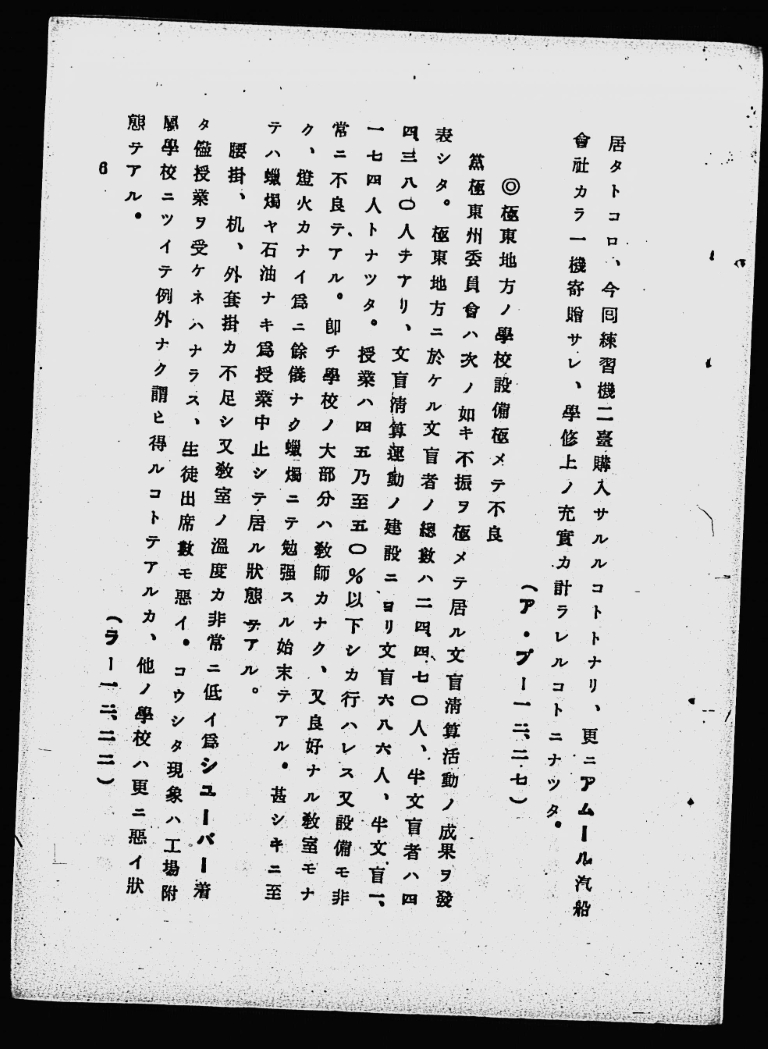 居タトコロ、今囘練習機二臺購入サルルコトトナリ、更ニアムール汽船
會社カラ一機寄贈サレ、學修上ノ充實カ計ラレルコトニナツタ。
（ア・プー一二、二七）
◎極東地方ノ學校設備極メテ不良
黨極東州委員會ハ次ノ如キ不振ヲ極メテ居ル文盲淸算活動ノ成果ヲ發
表シタ。極東地方ニ於ケル文盲者ノ總數ハ二四、四七〇人、半文盲者ハ四
四、三八〇人テアリ、文盲淸算運動ノ建設ニヨリ文盲六八六人、半文盲一、
一七四人トナツタ。授業ハ四五乃至五〇％以下シカ行ハレス又設備モ非
常ニ不良テアル。卽チ學校ノ大部分ハ敎師カナク、又良好ナル敎室モナ
ク、燈火カナイ爲ニ餘儀ナク蠟燭ニテ勉强スル始末テアル。甚シキニ至
テハ蠟燭ヤ石油ナキ爲授業中止シテ居ル狀態テアル。
腰掛、机、外套掛カ不足シ又敎室ノ溫度カ非常ニ低イ爲シユーバー着
タ儘授業ヲ受ケネハナラス、生徒出席數モ惡イ。コウシタ現象ハ工場附
屬學校ニツイテ例外ナク謂ヒ得ルコトテアルカ、他ノ學校ハ更ニ惡イ狀
態テアル。
（ラー一二、二二）
6